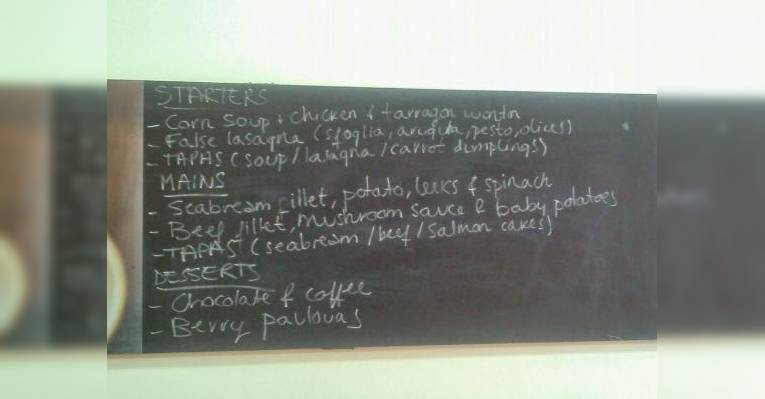 STARTERS
- Corn soup + chicken & tarragon wonton
- False lasagna (sfoglia, arugula, pesto, olices)
- TAPAS (soup/lasagna/carrot dumplings)
MAINS
- Seabream fillet, potato, leeks & spinach
- Beef fillet, mushroom sauce & baby potatoes
- TAPAS (seabream/beef/salmon cakes)
DESSERTS
- Chocolate & coffee
- Berry pavlovas